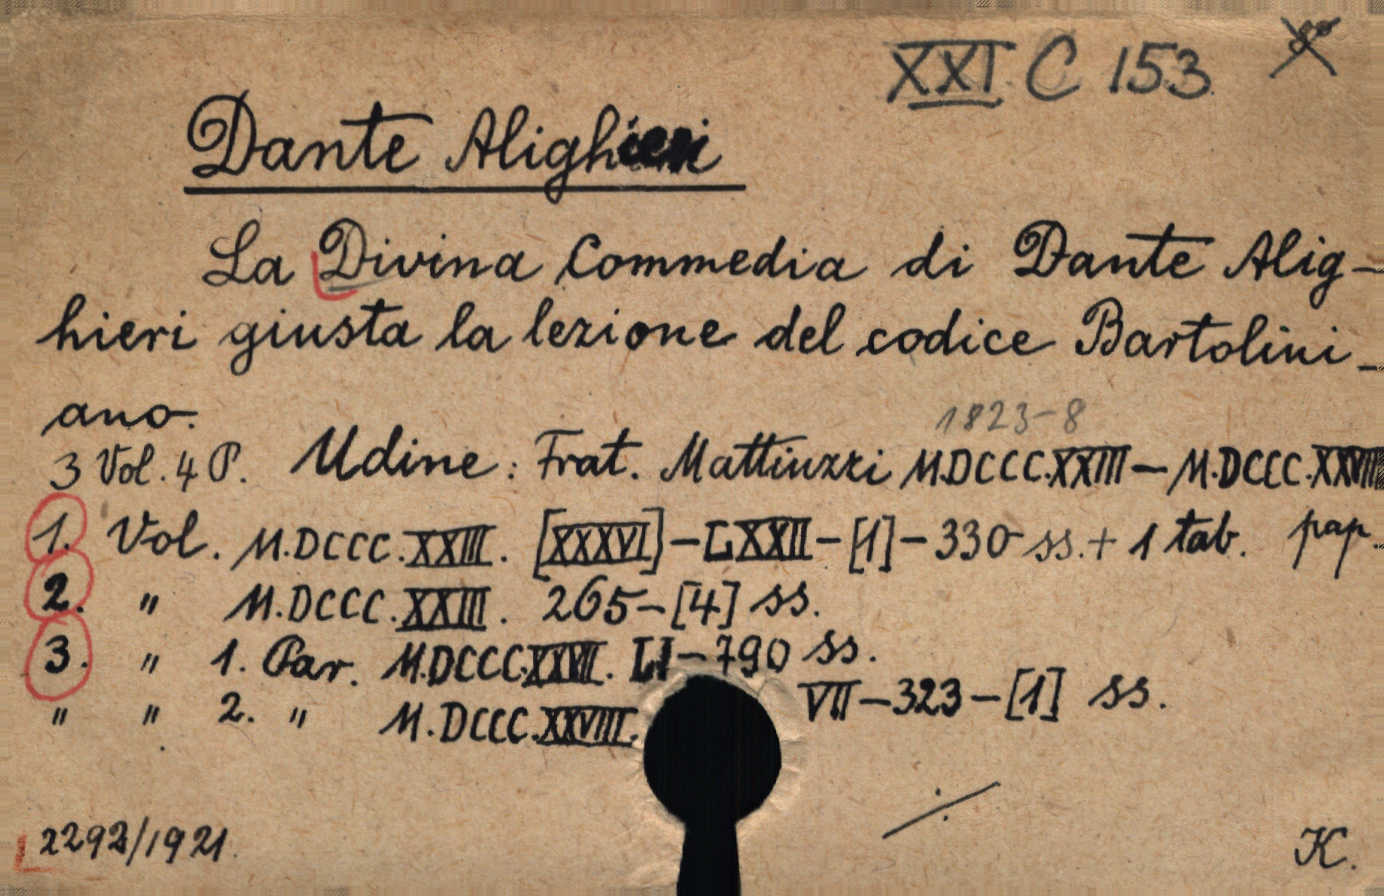 XXI C 153
Dante Alighieri
La Divina Commedia di Dante Alig-
hieri giusta la lezione del codice Bartolini-
ano.
1823-8
3 Vol. 4 P. Udine: Frat. Mattiuzzi M.DCCC.XXIII - M.DCCC.XXVIII
1. Vol. M.DCCC.XXIII. [XXXVI]-LXXII-[1]-330 ss.+ 1 tab. pap.
2. " M.DCCC.XXIII. 265-[4] ss.
3. " 1. Par. M.DCCC.XXVII. LI-790 ss.
" " 2. " M.DCCC.XXVIII. VII-323-[1] ss.
2292/1921.
K.